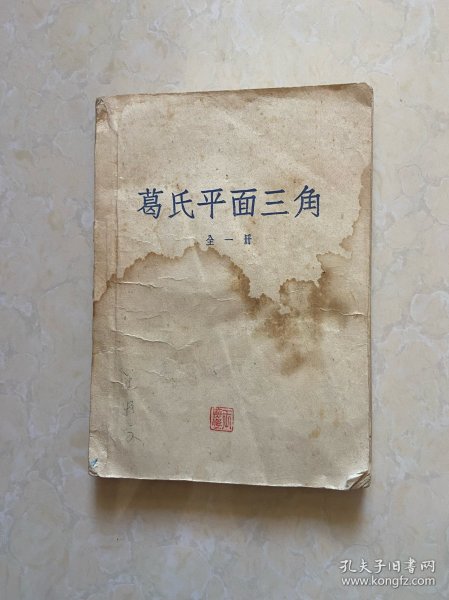 葛氏平面三角
全一册
孔夫子旧书网
www.kongfz.com